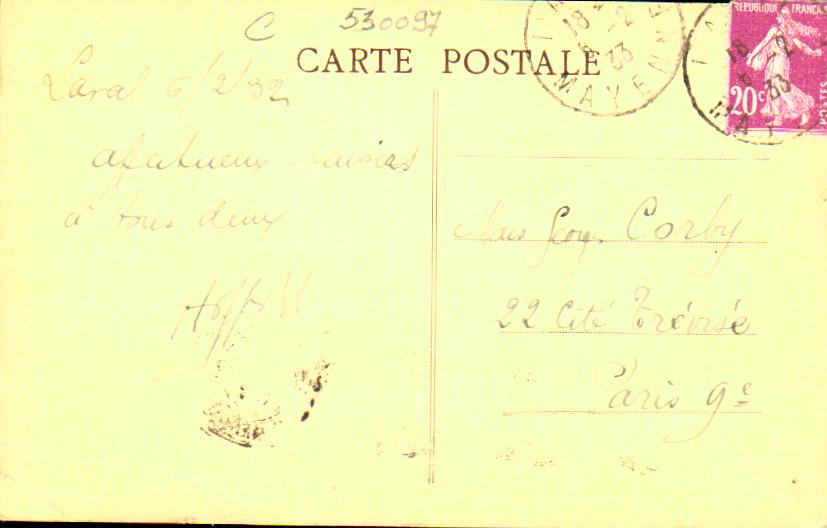 C 530097
CARTE POSTALE
Laval 6/2/33
affectueux baisers
à tous deux
18 -2
6 33
MAYENNE
REPUBLIQUE FRANÇAISE
20c
POSTES
18 2
6 33
MAY
Corby
22 Cité Trévise
Paris 9e